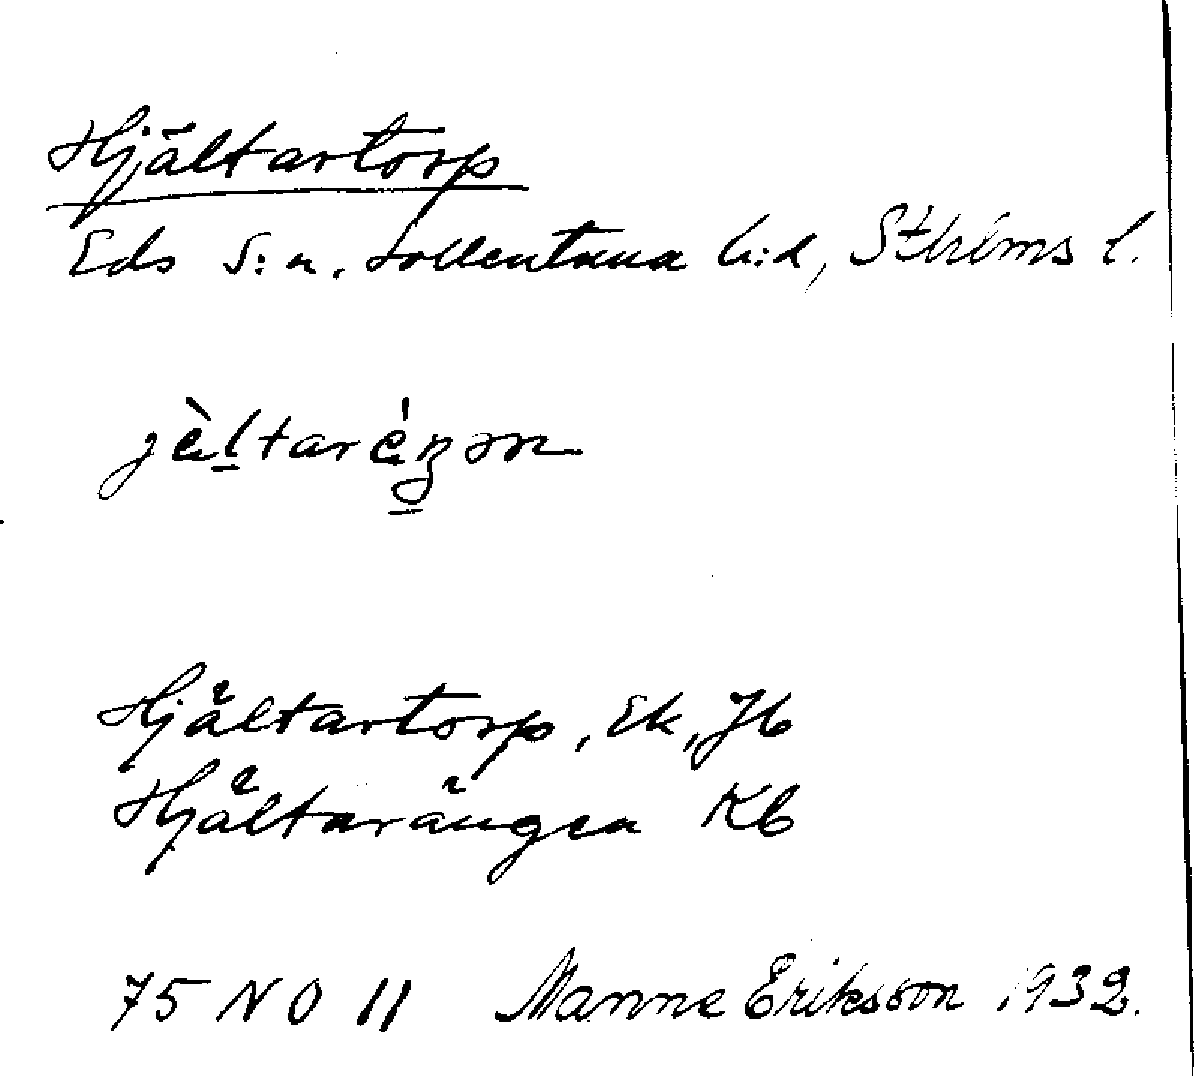 Hjältartorp
Eds s:n. Sollentuna h:d, Sthlms l.
Hjältartorp, Ek, Jb
Hjältarängen Kb
75 NO 11 Manne Eriksson 1932.